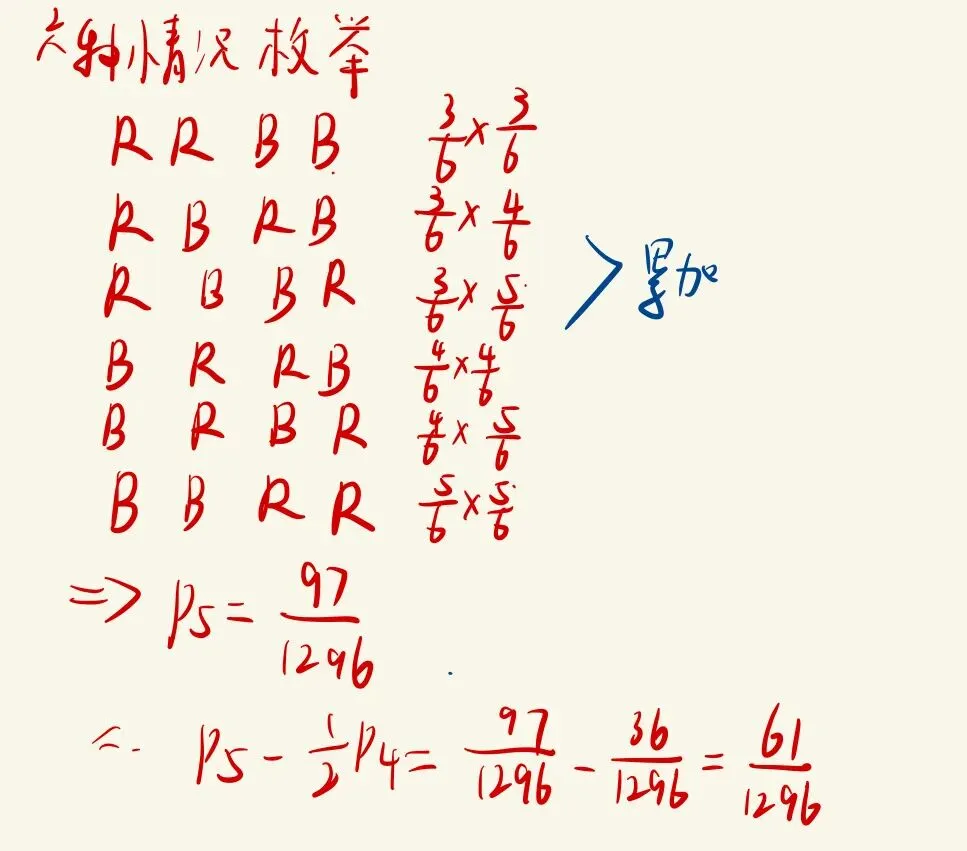 六种情况枚举
R R B B 3/6 × 3/6
R B R B 3/6 × 4/6
R B B R 3/6 × 5/6
> 累加
B R R B 4/6 × 4/6
B R B R 4/6 × 5/6
B B R R 5/6 × 5/6
=> P5 = 97/1296
∴ P5 - 1/2 P4 = 97/1296 - 36/1296 = 61/1296